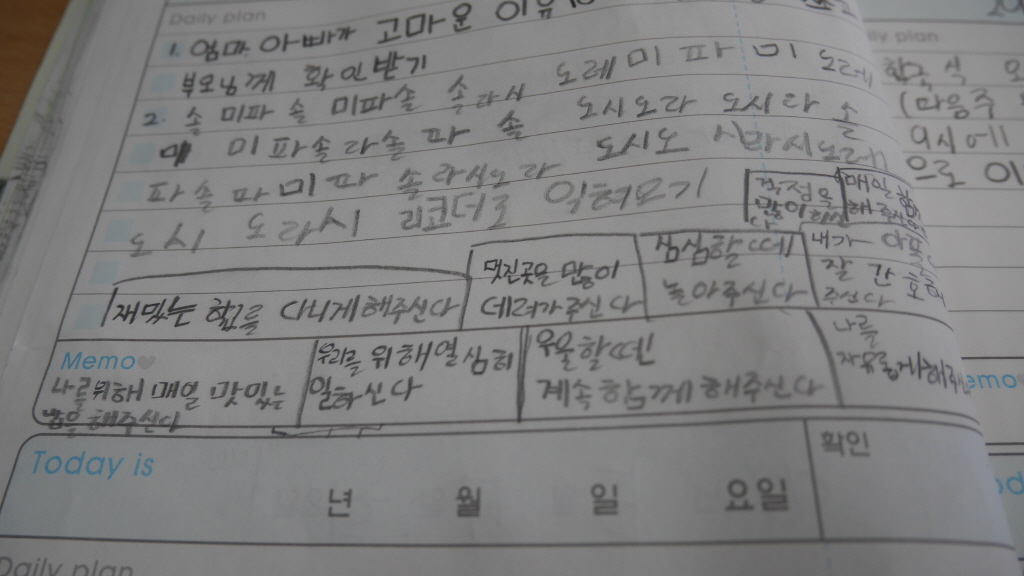 Daily plan
1. 엄마 아빠가 고마운 이유
부모님께 확인받기
2. 솔 미파솔 미파솔 솔라시 도레미파미 도레
미 미파솔라솔파솔 도시도라 도시라솔
파솔파미파 솔라시도라 도시도
도시 도라시 리코더로 익혀오기
걱정을 많이
매일
해주
내가
잘 간호해
주신다
재밌는 학교를 다니게해주신다
멋진곳을 많이
데려가주신다
심심할때
놀아주신다
Memo
나를위해 매일 맛있는
밥을 해주신다
우리를 위해열심히
일하신다
우울할땐
계속함께해주신다
나를
자유롭게해주
Today is
년 월 일 요일
확인
Daily plan
ily plan
한국식
(마음주
9시에
으로
emo